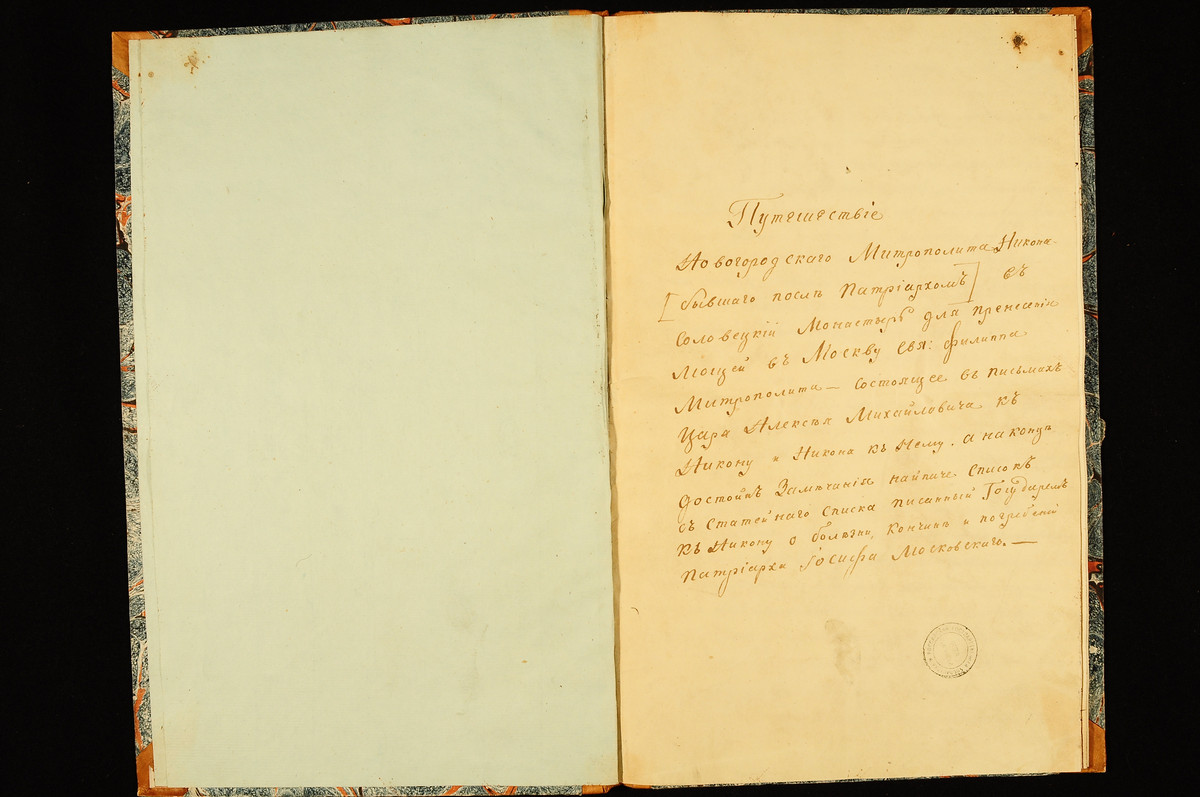 Путешествіе
Новогородскаго Митрополита Никона
[бывшаго послѣ Патріархомъ] въ
Соловецкій Монастырь для пренесенія
Мощей въ Москву Свя: Филиппа
Митрополита — состоящее въ письмахъ
Царя Алексѣя Михайловича къ
Никону и Никона къ Нему. а на концѣ
достоинъ Замѣчанія найпаче Списокъ
съ Статейнаго Списка писанный Государемъ
къ Никону о болѣзни, Кончинѣ и погребеніи
Патріарха Іосифа Московскаго. —